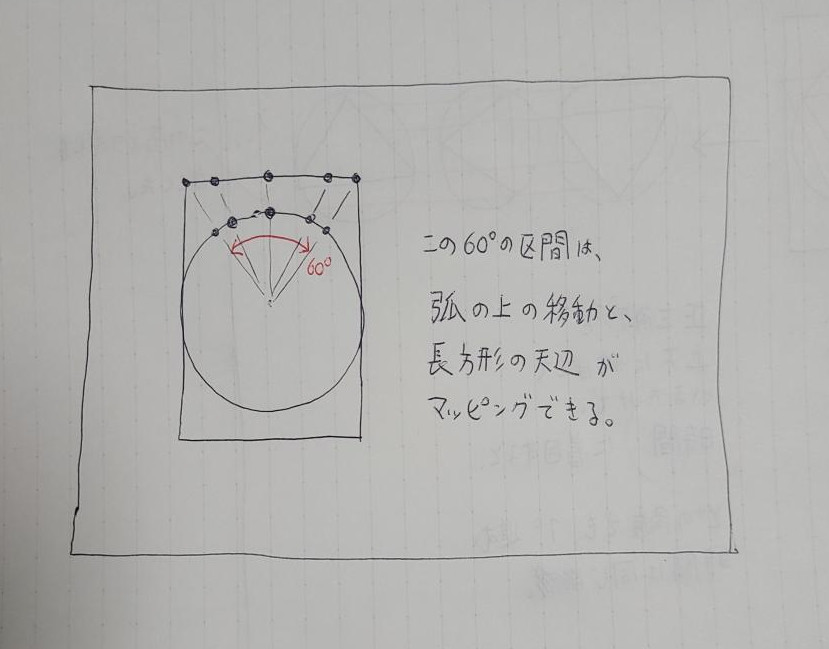 60°
この60°の区間は、
弧の上の移動と、
長方形の天辺が
マッピングできる。